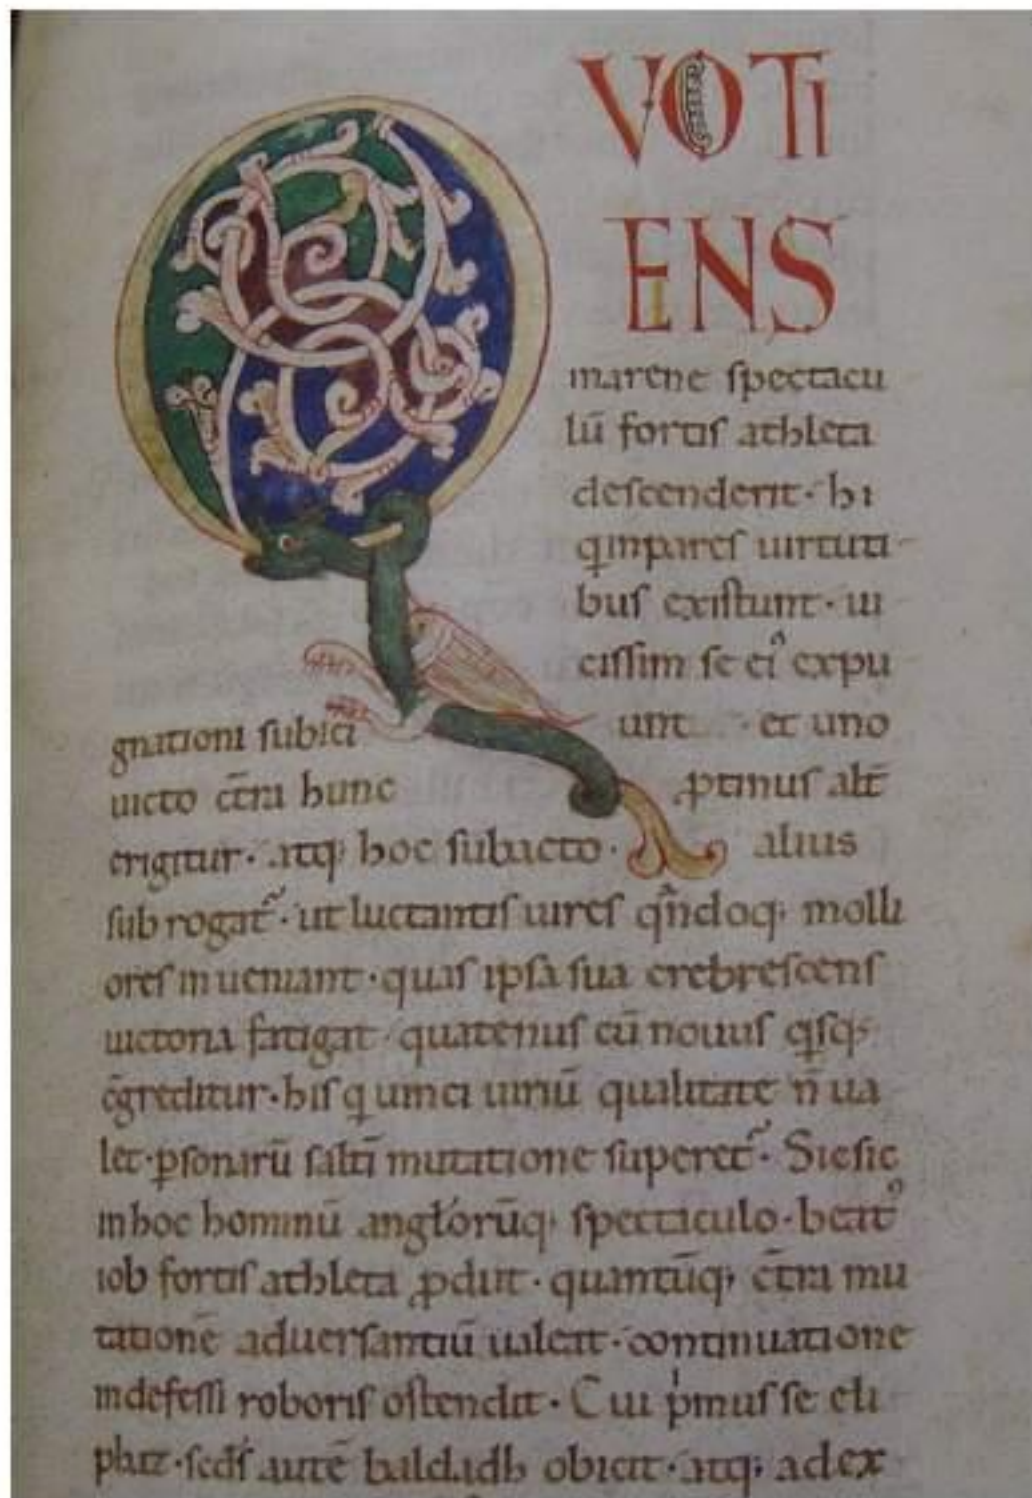 QVOTI
ENS
in arene spectacu
lū fortis athleta
descenderit· hi
q inpares uirtuti
bus existunt· ui
cissim se ei⁹ expu
gnationi subici unt· et uno
uicto c̄tra hunc ꝓtinus alt̄
erigitur· atq; hoc subacto· alius
sub rogat᷒· ut luctantis uires qn̄doq; molli
ores inueniant· quas ipsa sua crebrescens
uictoria fatigat· quatenus cū nouus qsq;
c̄greditur· his q uinci uiriū qualitate n̄ ua
let· ꝑsonarū saltī mutatione superet᷒· Sic sic
in hoc hominū anglorūq; spectaculo· beat⁹
iob fortis athleta ꝓdiit· quantūq; c̄tra mu
tationē aduersantiū ualeat· continuatione
indefessi roboris ostendit· Cui pⁱmus se eli
phaz· scds autē baldadh obicit· atq; ad ex